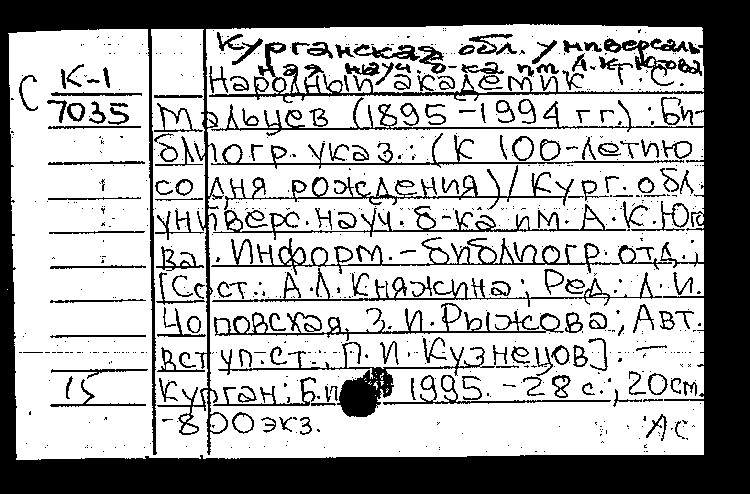 Курганская обл. универсаль-
ная науч. б-ка им. А.К. Югова
С К-1 Народный академик Т. С.
7035 Мальцев (1895-1994 гг.) : Би-
блиогр. указ.: (К 100-летию
со дня рождения) / Кург. обл.
универс. науч. б-ка им. А. К. Юго
ва. Информ.-библиогр. отд.;
[Сост.: А.Л. Княжина; Ред.: Л. И.
Чоповская, З. И. Рыжова; Авт.
вступ. ст.: П. И. Кузнецов]. —
15 Курган: Б.и 1995. - 28 с.; 20см.
-800 экз.
АС